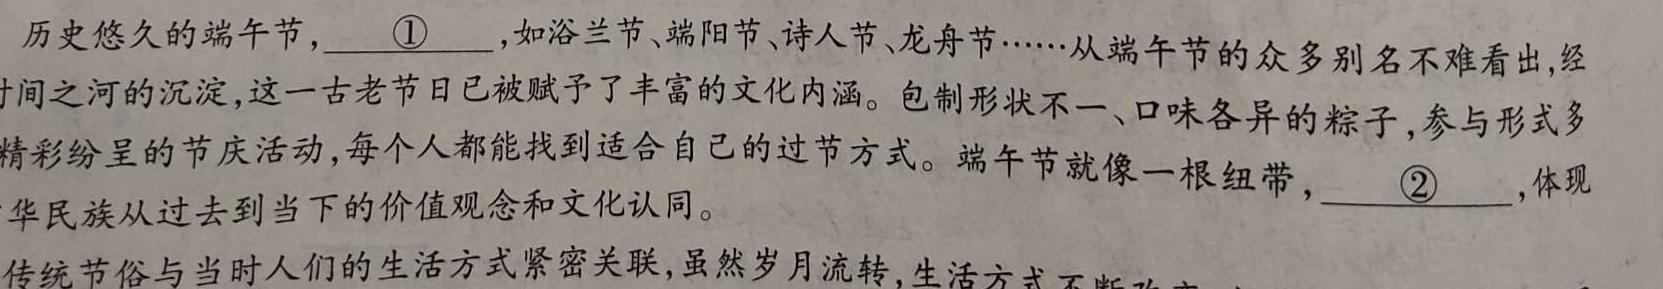 历史悠久的端午节,①,如浴兰节、端阳节、诗人节、龙舟节……从端午节的众多别名不难看出,经
间之河的沉淀,这一古老节日已被赋予了丰富的文化内涵。包制形状不一、口味各异的粽子,参与形式多
精彩纷呈的节庆活动,每个人都能找到适合自己的过节方式。端午节就像一根纽带,②,体现
华民族从过去到当下的价值观念和文化认同。
传统节俗与当时人们的生活方式紧密关联,虽然岁月流转,生活方式不断